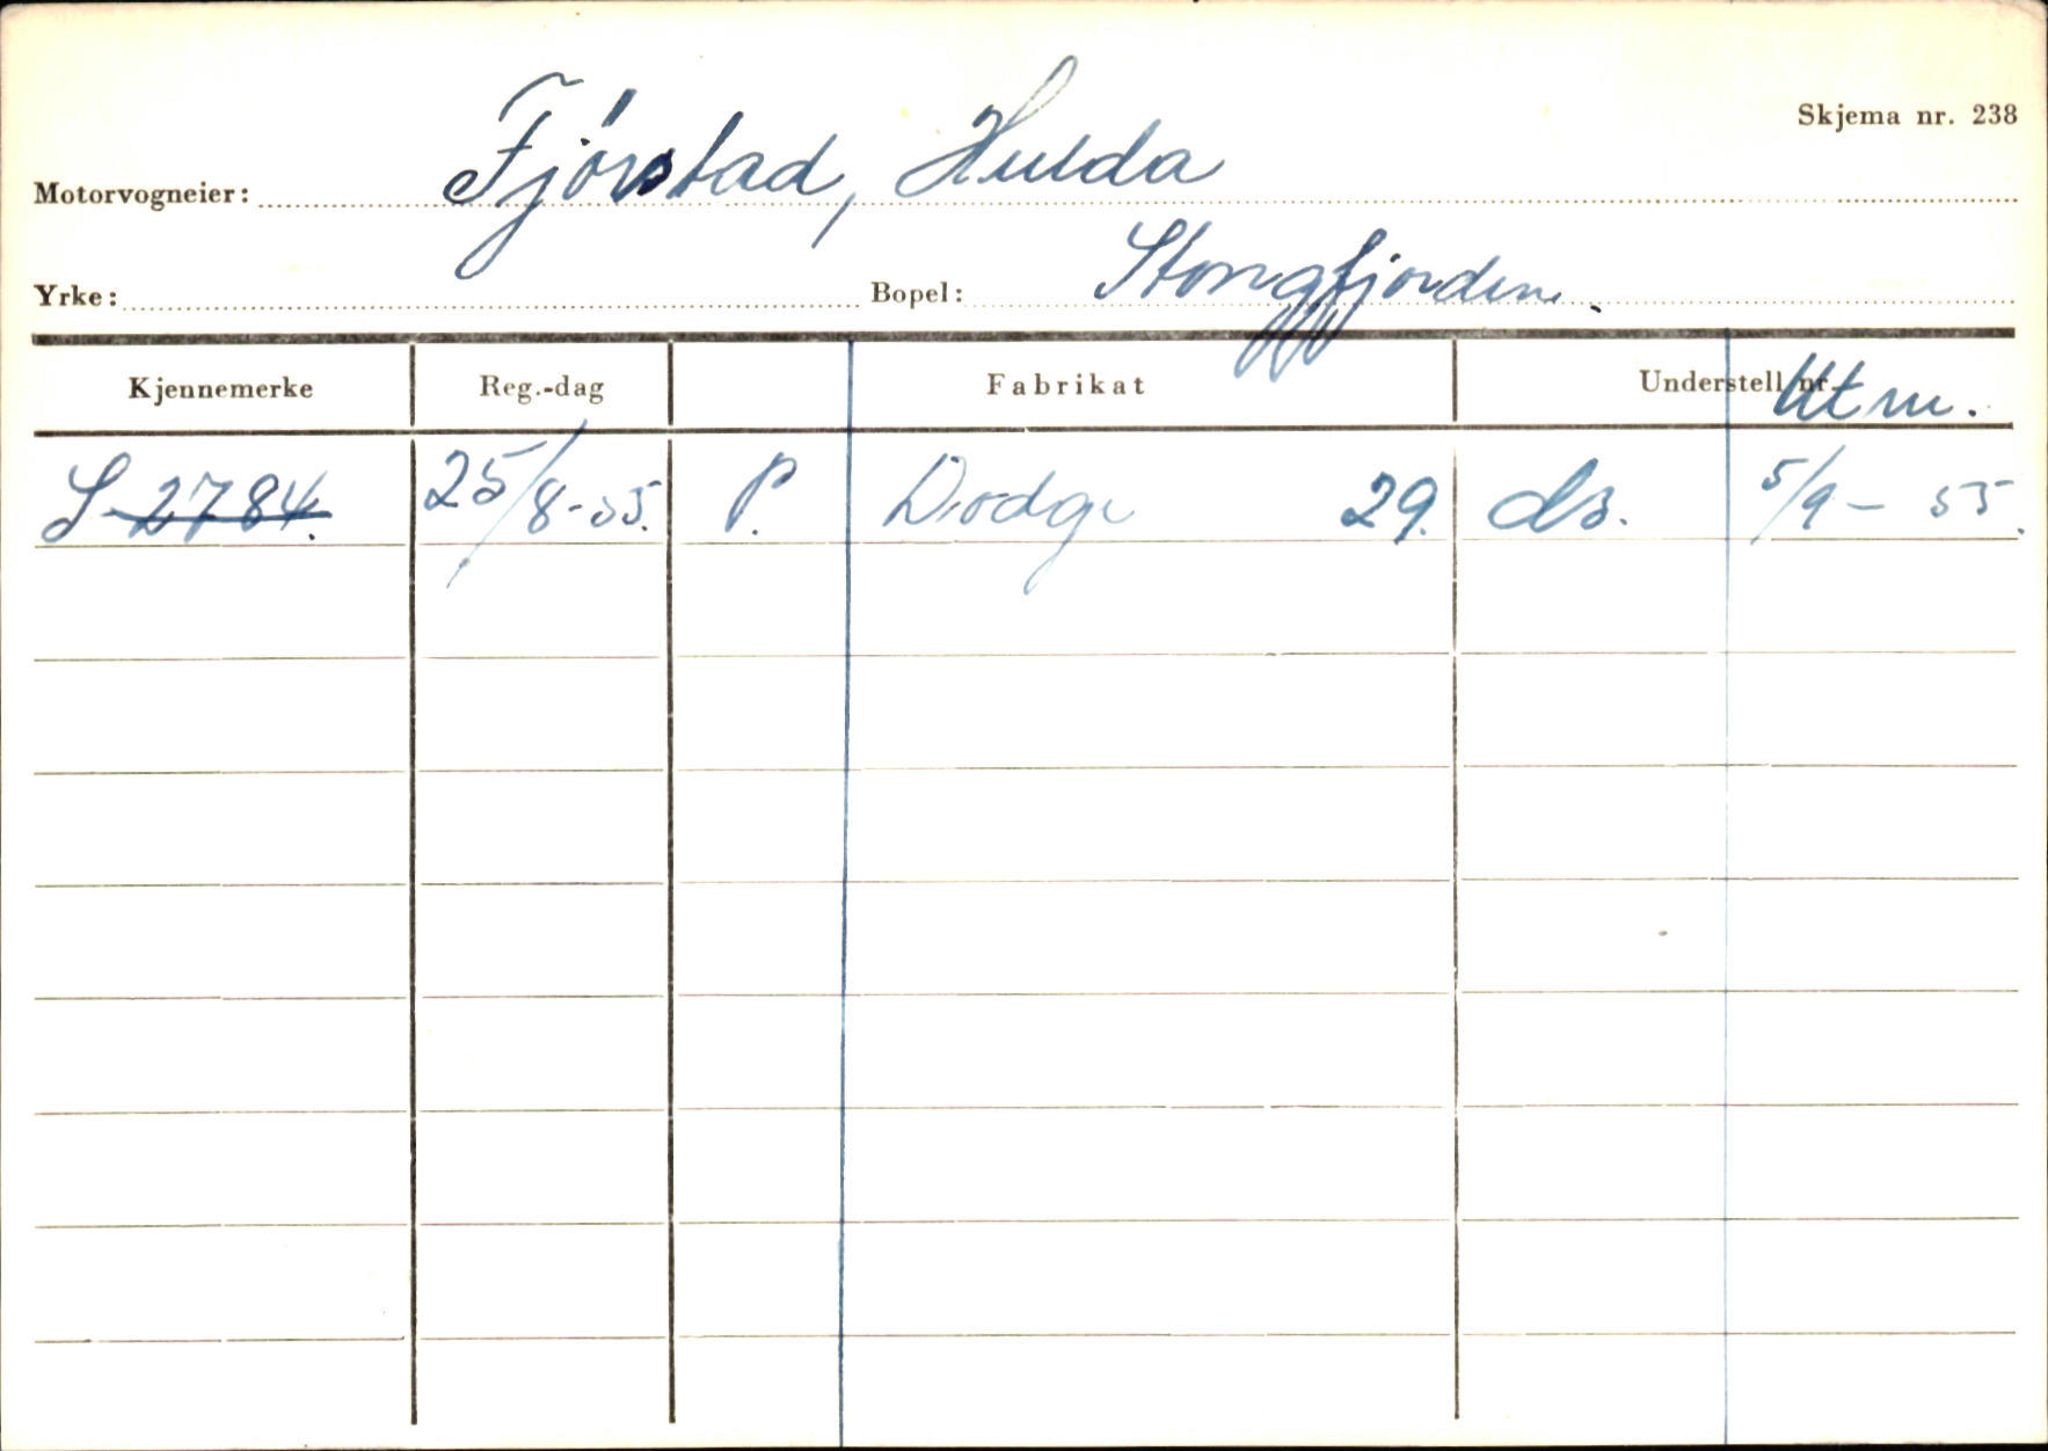 Skjema nr. 238
Motorvogneier: Fjørstad, Hulda
Yrke: Bopel: Stongfjorden.
Kjennemerke Reg.-dag Fabrikat Understell nr. Utm.
S-2784. 25/8-55. P. Dodge 29. ds. 5/9-55.